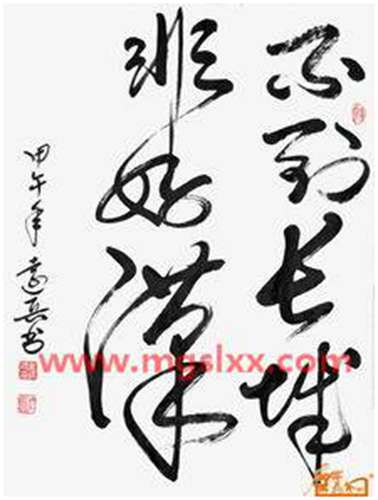 不到長城
非好漢
甲午年
www.mgslxx.com